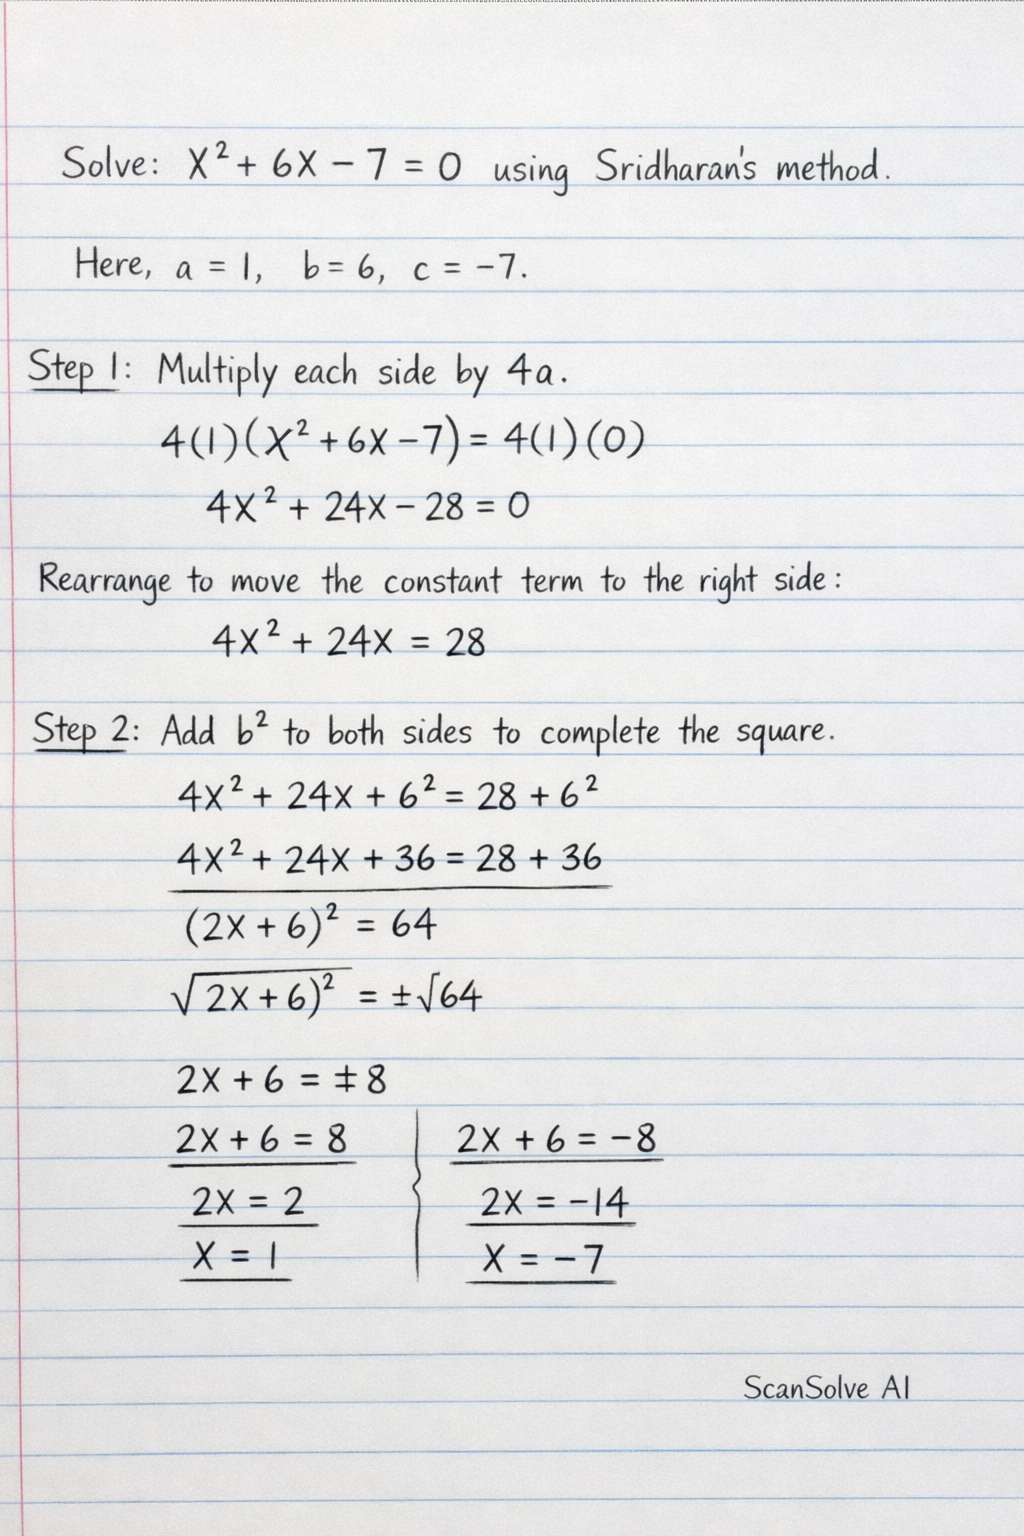 Solve: x² + 6x − 7 = 0 using Sridharan's method.
Here, a = 1, b = 6, c = −7.
Step 1: Multiply each side by 4a.
4(1)(x² + 6x − 7) = 4(1)(0)
4x² + 24x − 28 = 0
Rearrange to move the constant term to the right side:
4x² + 24x = 28
Step 2: Add b² to both sides to complete the square.
4x² + 24x + 6² = 28 + 6²
4x² + 24x + 36 = 28 + 36
(2x + 6)² = 64
√2x + 6)² = ±√64
2x + 6 = ±8
2x + 6 = 8
2x = 2
x = 1
2x + 6 = −8
2x = −14
x = −7
ScanSolve AI